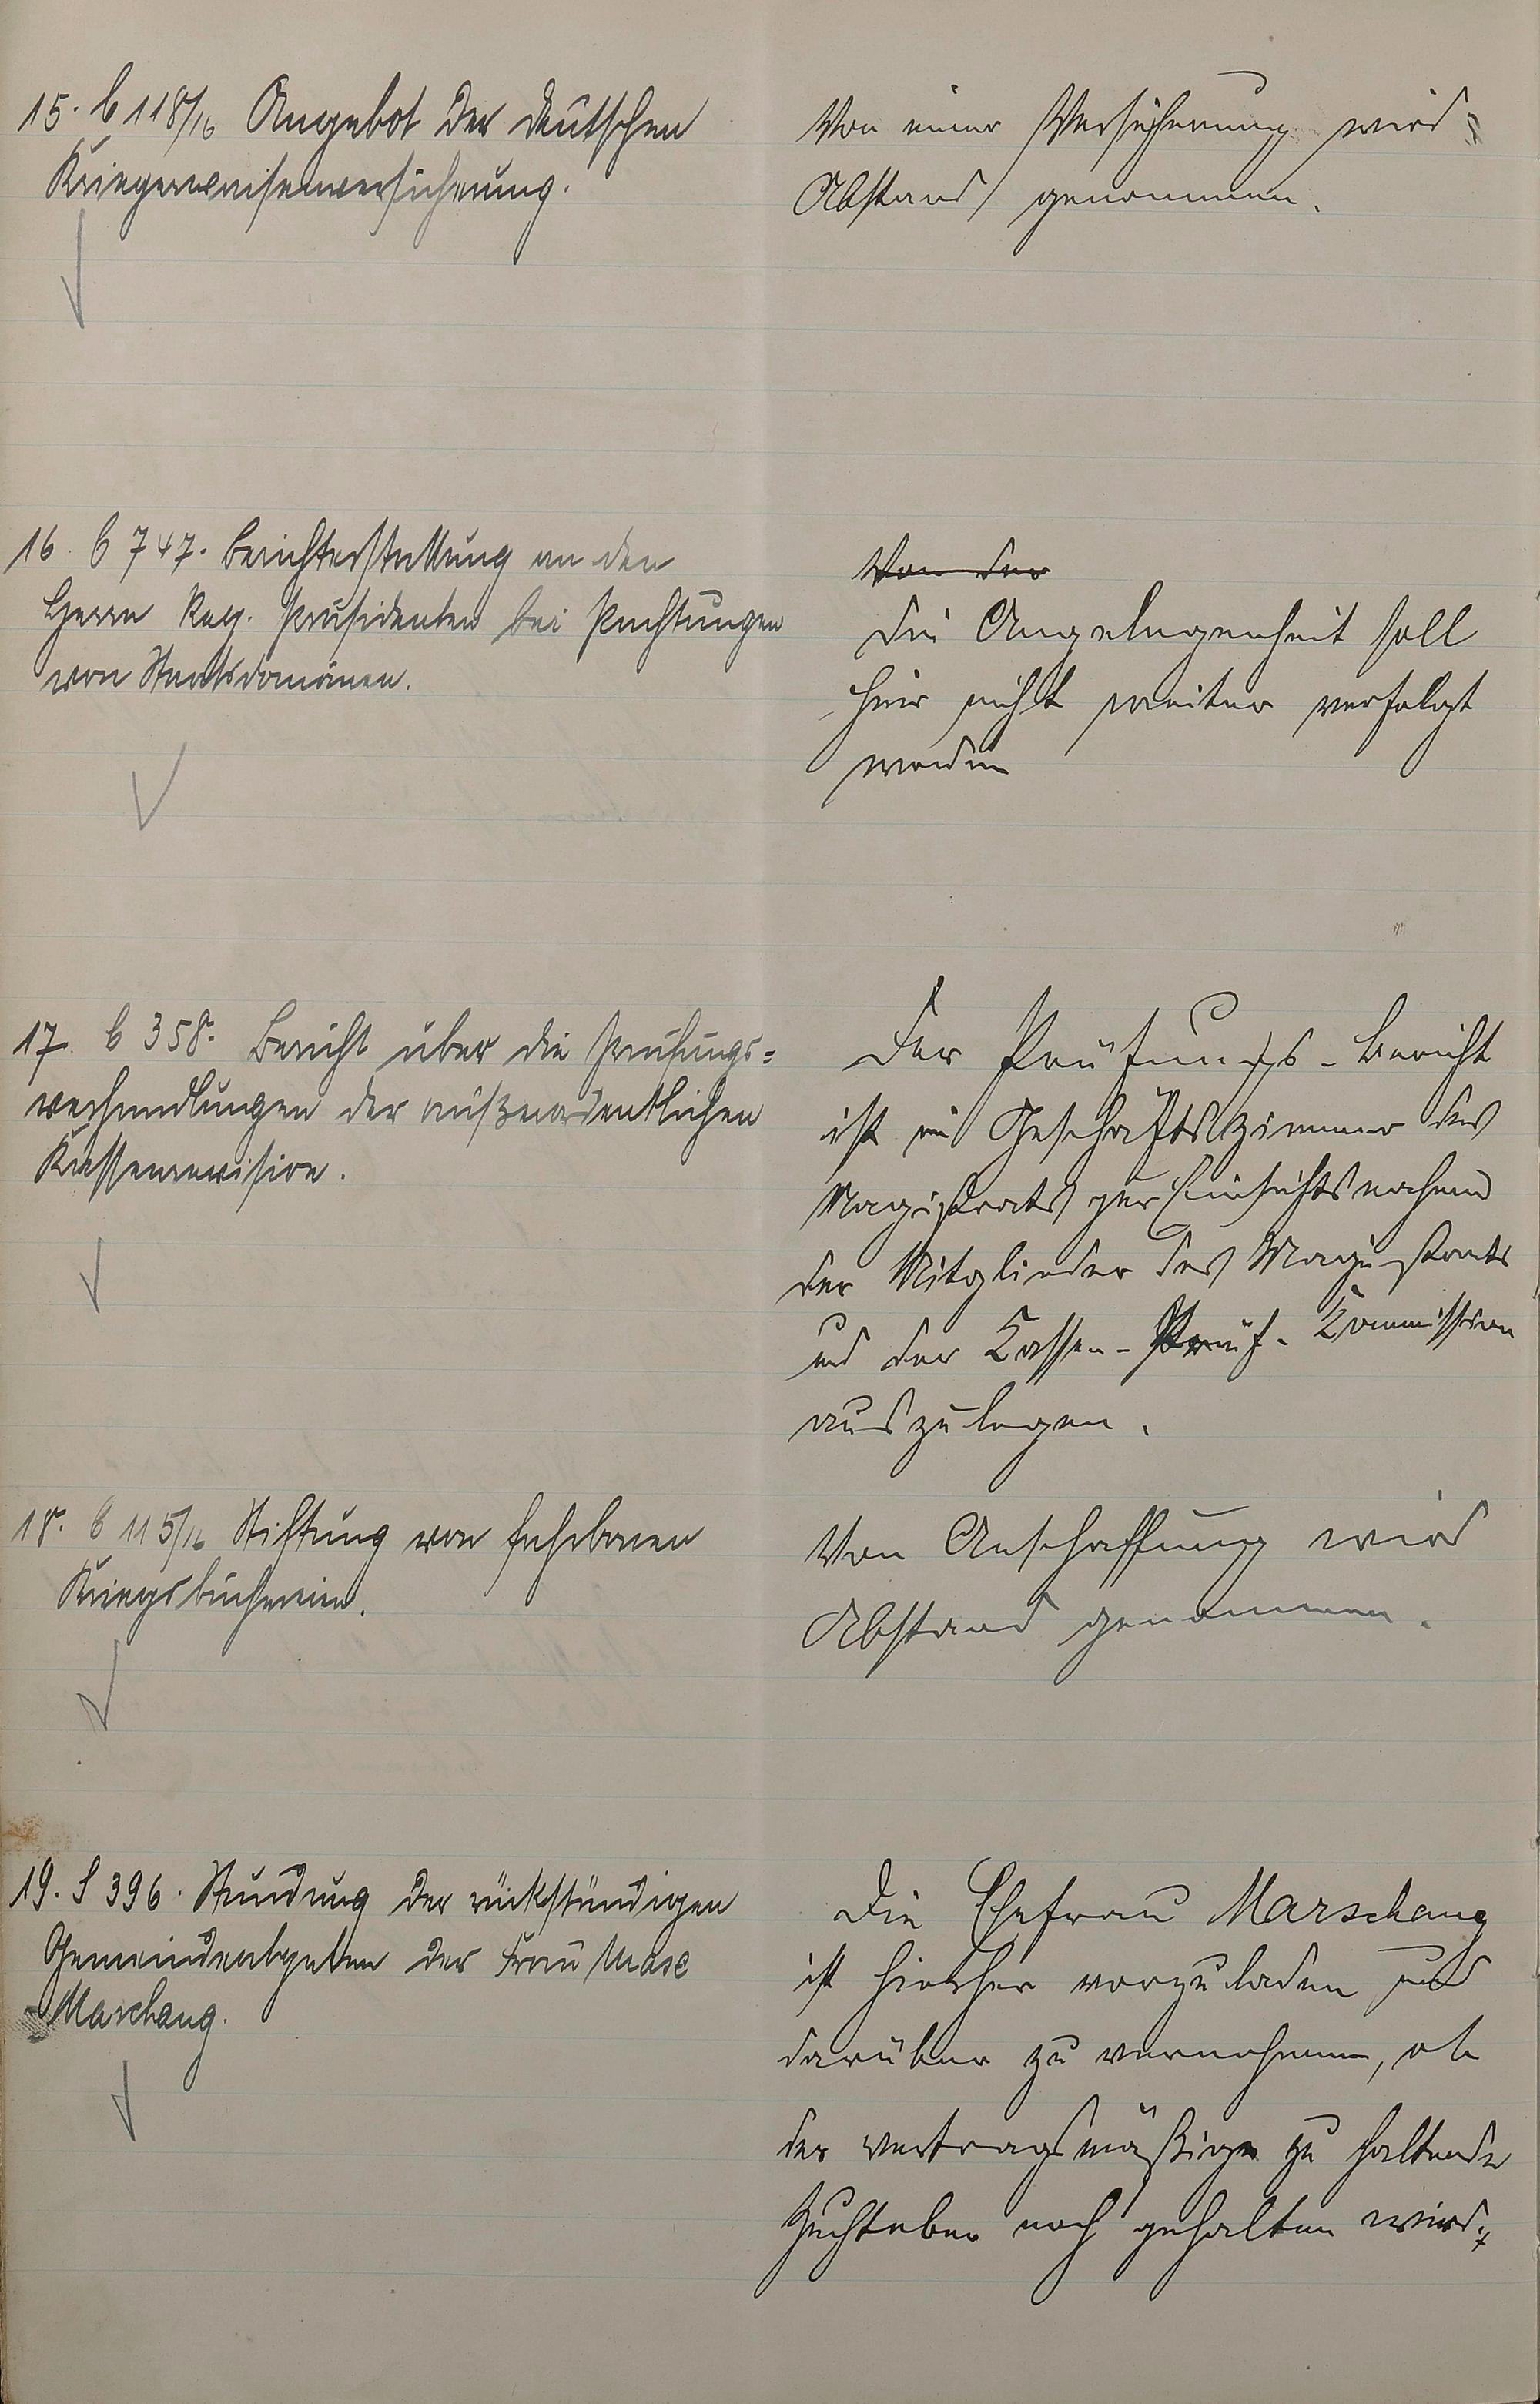 15. C 118/16 Angebot der deutschen
Kriegerwaisenversicherung.
Von einer Versicherung wird
Abstand genommen.
16. C 747. Berichterstattung an den
Herrn Reg. Präsidenten bei Pachtungen
von Staatsdomänen.
Von der
Die Angelegenheit soll
hier nicht weiter verfolgt
werden
17. C 358. Bericht über die Prüfungs=
verhandlungen der außerordentlichen
Kassenrevision.
Der Prüfungs-Bericht
ist im Geschäftszimmer des
Magistrats zur Einsichtsnahme
der Mitglieder des Magistrats
und der Kassen-Prüf.-Kommission
auszulegen.
18. C 115/16 Stiftung von fahrbaren
Kriegsbüchereien.
Von Anschaffung wird
Abstand genommen.
19. S 396. Stundung der rückständigen
Gemeindeabgaben der Frau
Marschang.
Die Ehefrau Marschang
ist hierher vorzuladen und
darüber zu vernehmen, ob
der vertragsmäßig zu haltende
Zuchteber noch gehalten wird.